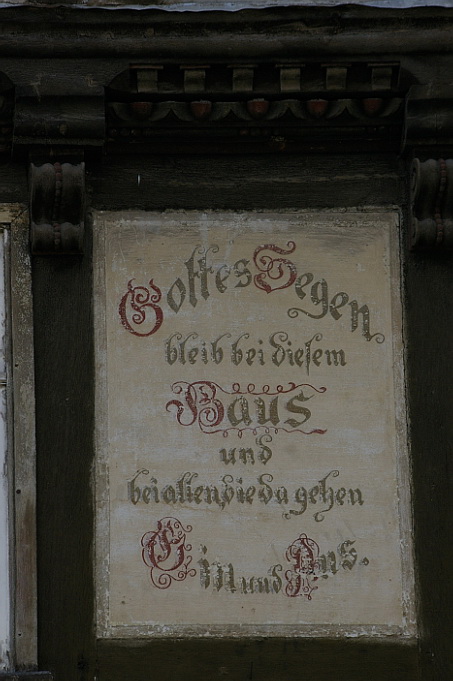 Gottes Segen
bleib bei diesem
Haus
und
bei allen, die da gehen
Ein und Aus.